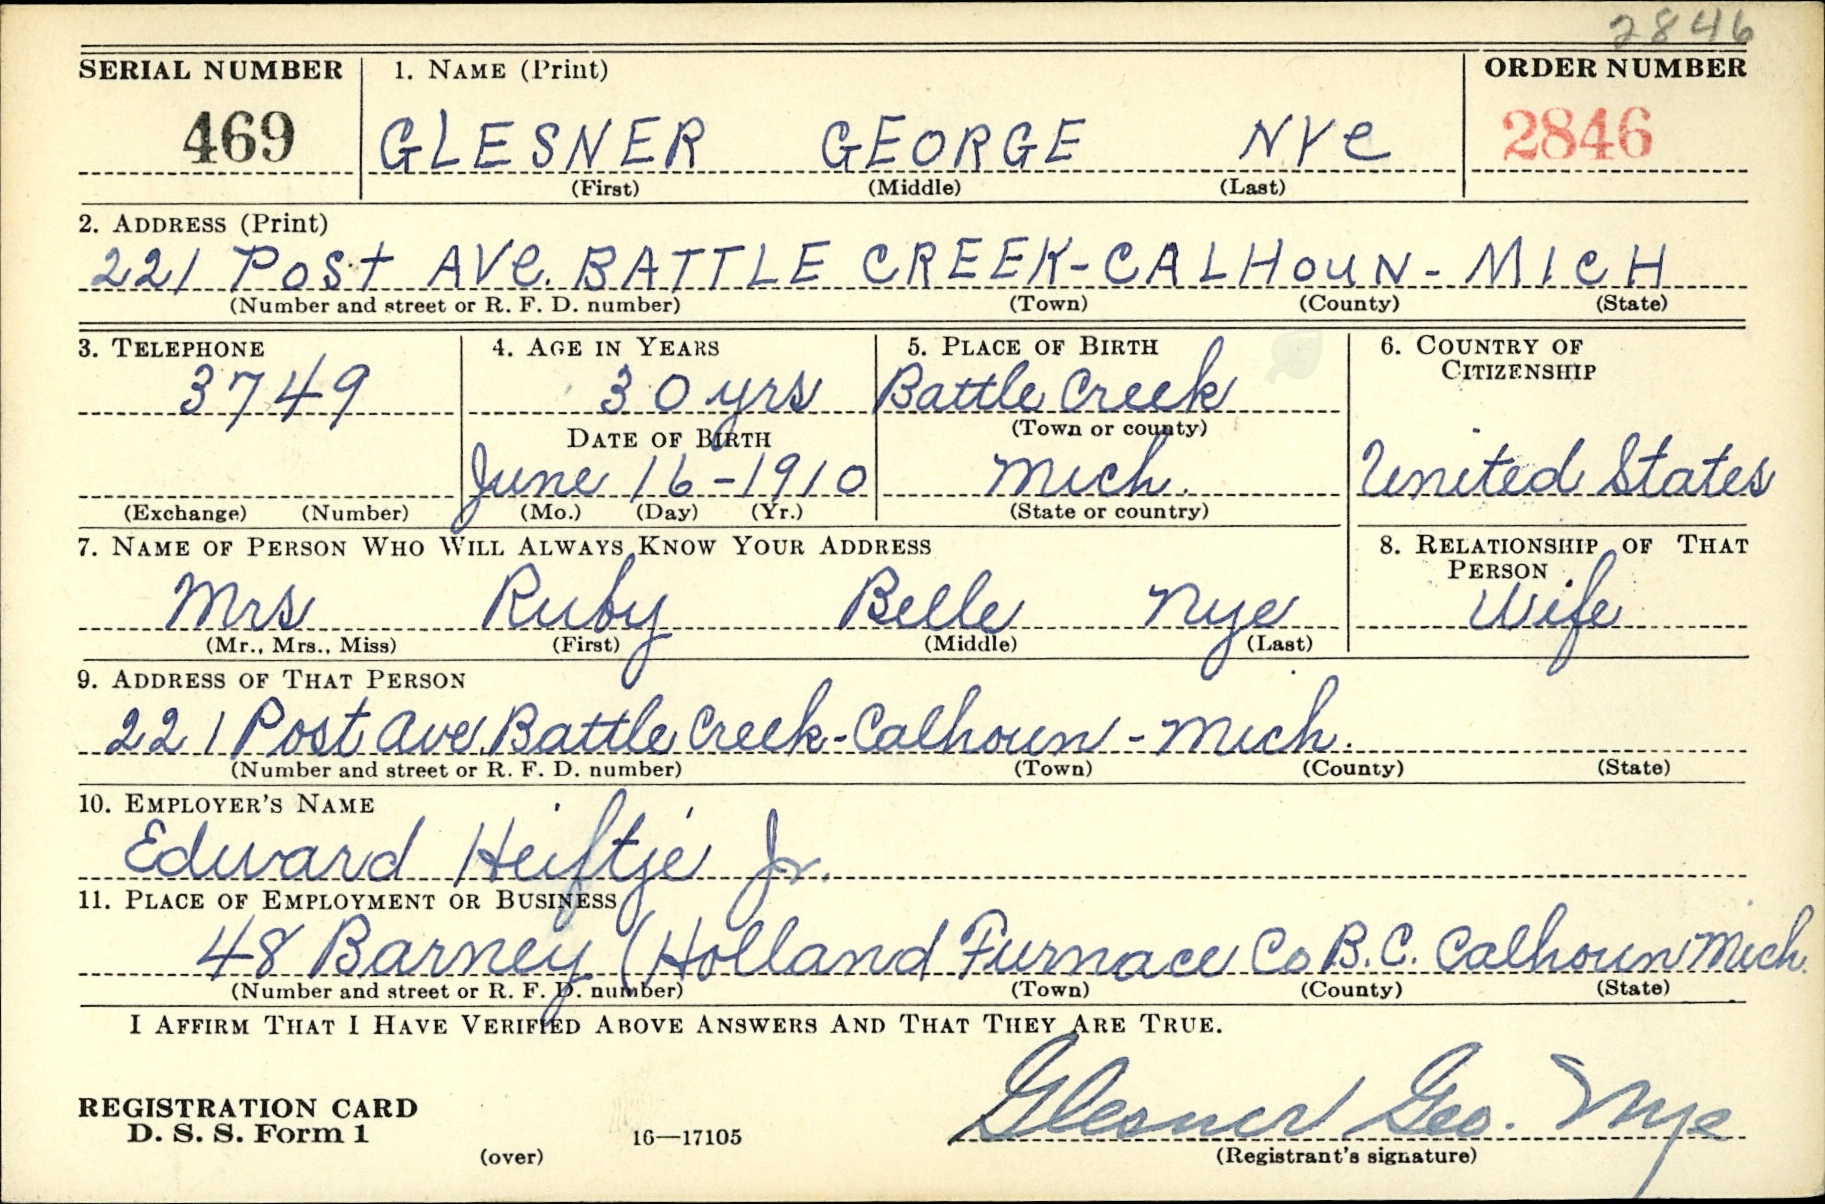 2846
SERIAL NUMBER 1. NAME (Print) ORDER NUMBER
469 GLESNER GEORGE NYe 2846
(First) (Middle) (Last)
2. ADDRESS (Print)
221 Post AVe. BATTLE CREEK-CALHOUN-MICH
(Number and street or R. F. D. number) (Town) (County) (State)
3. TELEPHONE 4. AGE IN YEARS 5. PLACE OF BIRTH 6. COUNTRY OF CITIZENSHIP
3749 30 yrs Battle Creek
DATE OF BIRTH (Town or county)
June 16-1910 Mich. United States
(Exchange) (Number) (Mo.) (Day) (Yr.) (State or country)
7. NAME OF PERSON WHO WILL ALWAYS KNOW YOUR ADDRESS 8. RELATIONSHIP OF THAT PERSON
Mrs Ruby Belle Nye Wife
(Mr., Mrs., Miss) (First) (Middle) (Last)
9. ADDRESS OF THAT PERSON
221 Post Ave. Battle Creek-Calhoun-Mich.
(Number and street or R. F. D. number) (Town) (County) (State)
10. EMPLOYER'S NAME
Edward Heiftje Jr.
11. PLACE OF EMPLOYMENT OR BUSINESS
48 Barney (Holland Furnace Co B.C. Calhoun Mich.
(Number and street or R. F. D. number) (Town) (County) (State)
I AFFIRM THAT I HAVE VERIFIED ABOVE ANSWERS AND THAT THEY ARE TRUE.
Glesner Geo. Nye
REGISTRATION CARD
D. S. S. Form 1 16—17105
(over) (Registrant's signature)